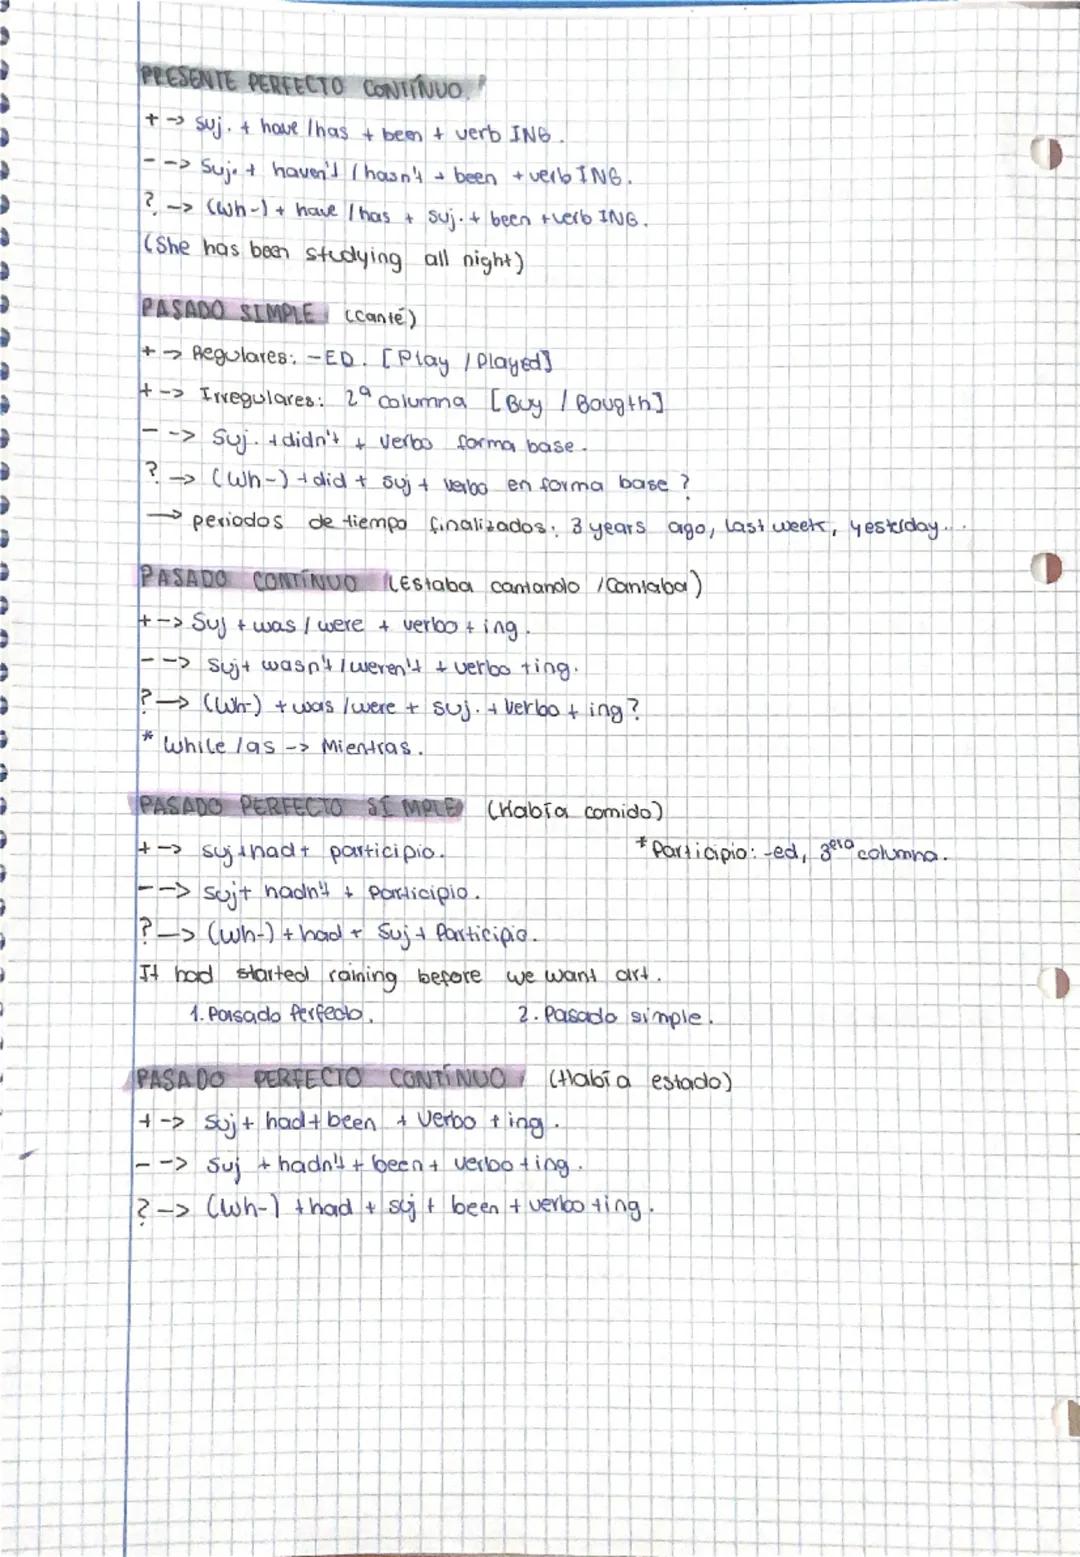 PRESENTE PERFECTO CONTÍNUO.
+ -> suj. + have / has + been + verb ING.
- -> Suj. + haven't / hasn't + been + verb ING.
? -> (Wh-) + have / has + suj. + been + verb ING.
(She has been studying all night)
PASADO SIMPLE (Canté)
+ -> Regulares: -ED. [Play / Played]
+ -> Irregulares: 2ª columna [Buy / Bougth]
- -> Suj. + didn't + verbo forma base.
? -> (Wh-) + did + suj + verbo en forma base ?
-> periodos de tiempo finalizados: 3 years ago, last week, yesterday...
PASADO CONTÍNUO (Estaba cantando / Cantaba)
+ -> Suj + was / were + verbo + ing.
- -> Suj + wasn't / weren't + verbo + ing.
? -> (Wh-) + was / were + suj. + Verbo + ing ?
* While / as -> Mientras.
PASADO PERFECTO SÍMPLE (Había comido)
+ -> suj + had + participio. * Participio: -ed, 3era columna.
- -> suj + hadn't + Participio.
? -> (Wh-) + had + Suj + Participio.
It had started raining before we want art.
1. Pasado Perfecto. 2. Pasado simple.
PASADO PERFECTO CONTÍNUO (Había estado)
+ -> Suj + had + been + Verbo + ing.
- -> Suj + hadn't + been + verbo + ing.
? -> (Wh-) + had + suj + been + verbo + ing.